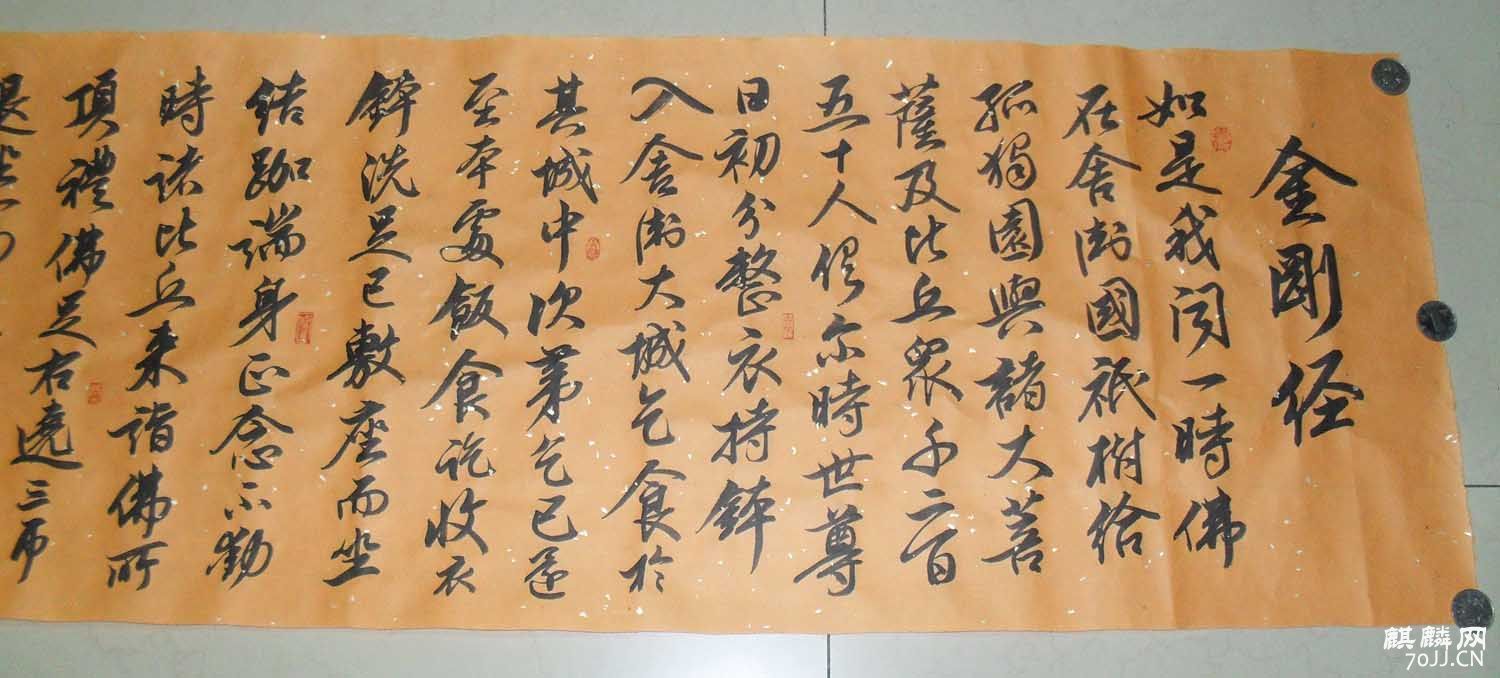 金剛经
如是我闻一時佛
在舍衛國祇树给
孤獨園與諸大菩
薩及比丘眾千二百
五十人俱尔時世尊
日初分整衣持鉢
入舍衛大城乞食於
其城中次第乞已還
至本處飯食訖收衣
鉢洗足已敷座而坐
结跏端身正念不動
時诸比丘来詣佛所
頂禮佛足右遶三帀
退坐一
麒麟网
70JJ.CN